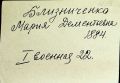 Близниченко
Мария Дементьевна
1894
I Военная 22.